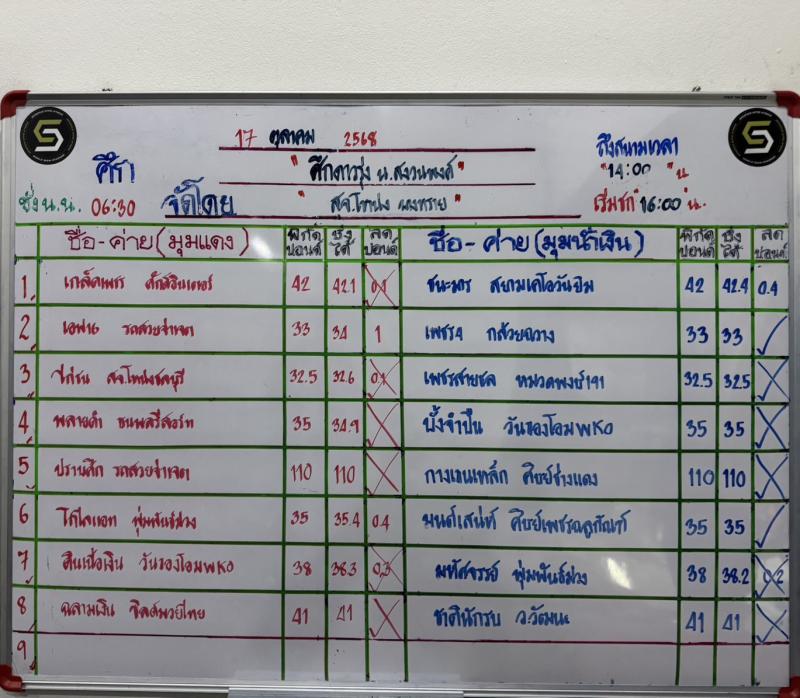 17 ตุลาคม 2568
ศึก "ศึกดาวรุ่ง น.สงวนพงศ์"
ถึงสนามเวลา "14:00" น
ชั่ง น.น. 06:30 จัดโดย " สจ.โทนง
เริ่มชก "16:00" น.
ชื่อ-ค่าย (มุมแดง) พิกัด ปอนด์ ชั่งได้ ลด ปอนด์ ชื่อ-ค่าย (มุมน้ำเงิน) พิกัด ปอนด์ ชั่งได้ ลด ปอนด์
1 เกล็ดเพชร 42 42.1 0.1 สยามเคโอวันยิม 42 42.4 0.4
2 เอฟ16 รถสวยจ่าเจต 33 34 1 เพชร4 กล้วยฉวาง 33 33
3 32.5 32.6 0.1 เพชรสายชล หมวดพงษ์191 32.5 32.5
4 พลายดำ ชนพลรีสอร์ท 35 34.9 บั้งจำปืน วันของโอมพKO 35 35
5 ปราบศึก รถสวยจ่าเจต 110 110 กางเขนเหล็ก ศิษย์ช่างแดง 110 110
6 พุ่มพันธ์ม่วง 35 35.4 0.4 มนต์เสน่ห์ 35 35
7 วันของโอมพKO 38 38.3 0.3 มหัศจรรย์ พุ่มพันธ์ม่วง 38 38.2 0.2
8 ฉลามเงิน ชิลด์มวยไทย 41 41 ชาตินักรบ ว.วัฒนะ 41 41
9